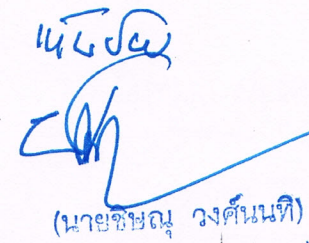 เห็นชอบ
(นายชิษณุ วงศ์นนที)